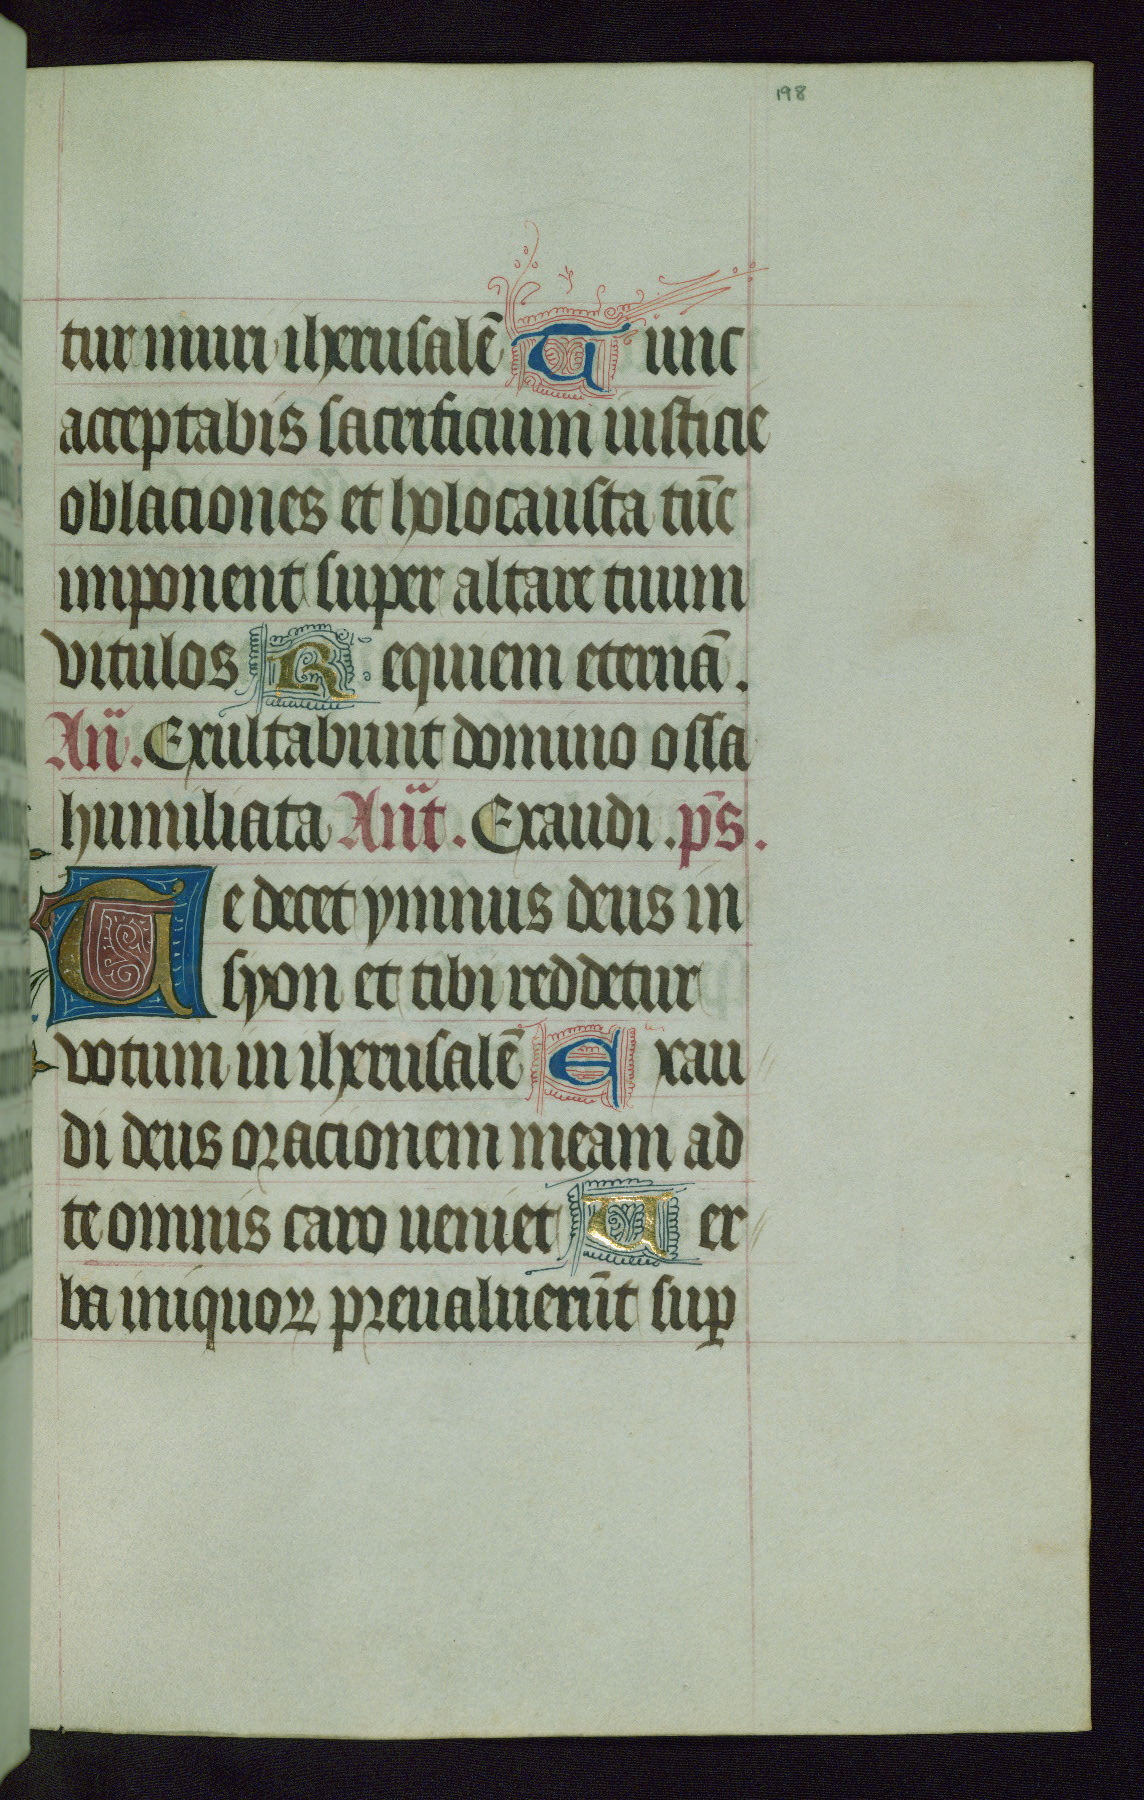 198
tur muri iherusalē Tunc
acceptabis sacrificium iusticie
oblaciones et holocausta tūc
imponent super altare tuum
vitulos Requiem eternā.
An̄. Exultabunt domino ossa
humiliata An̄t. Exaudi. p̄s.
Te decet ymnus deus in
syon et tibi reddetur
votum in iherusalē Exau
di deus oracionem meam ad
te omnis caro ueniet Uer
ba iniquoꝝ preualuerūt suꝑ